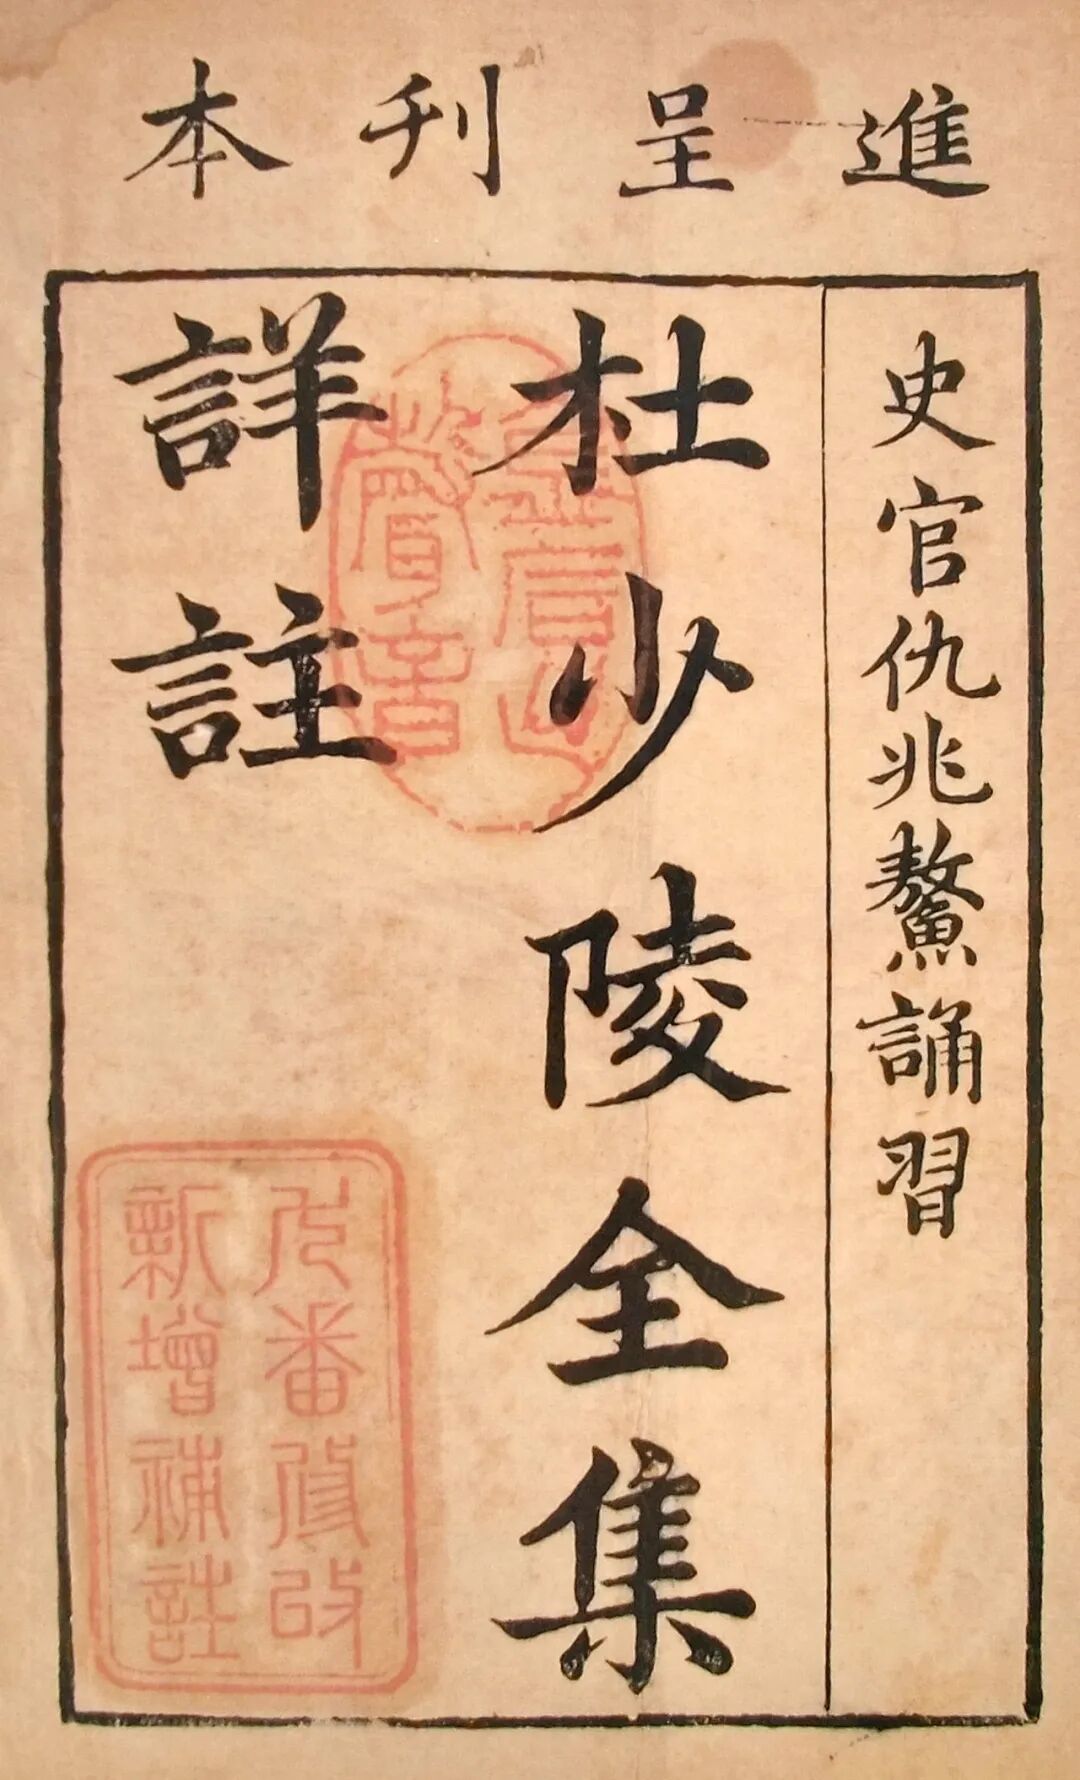 進呈刊本
史官仇兆鰲誦習
杜少陵全集
詳註
番修改
新增補註